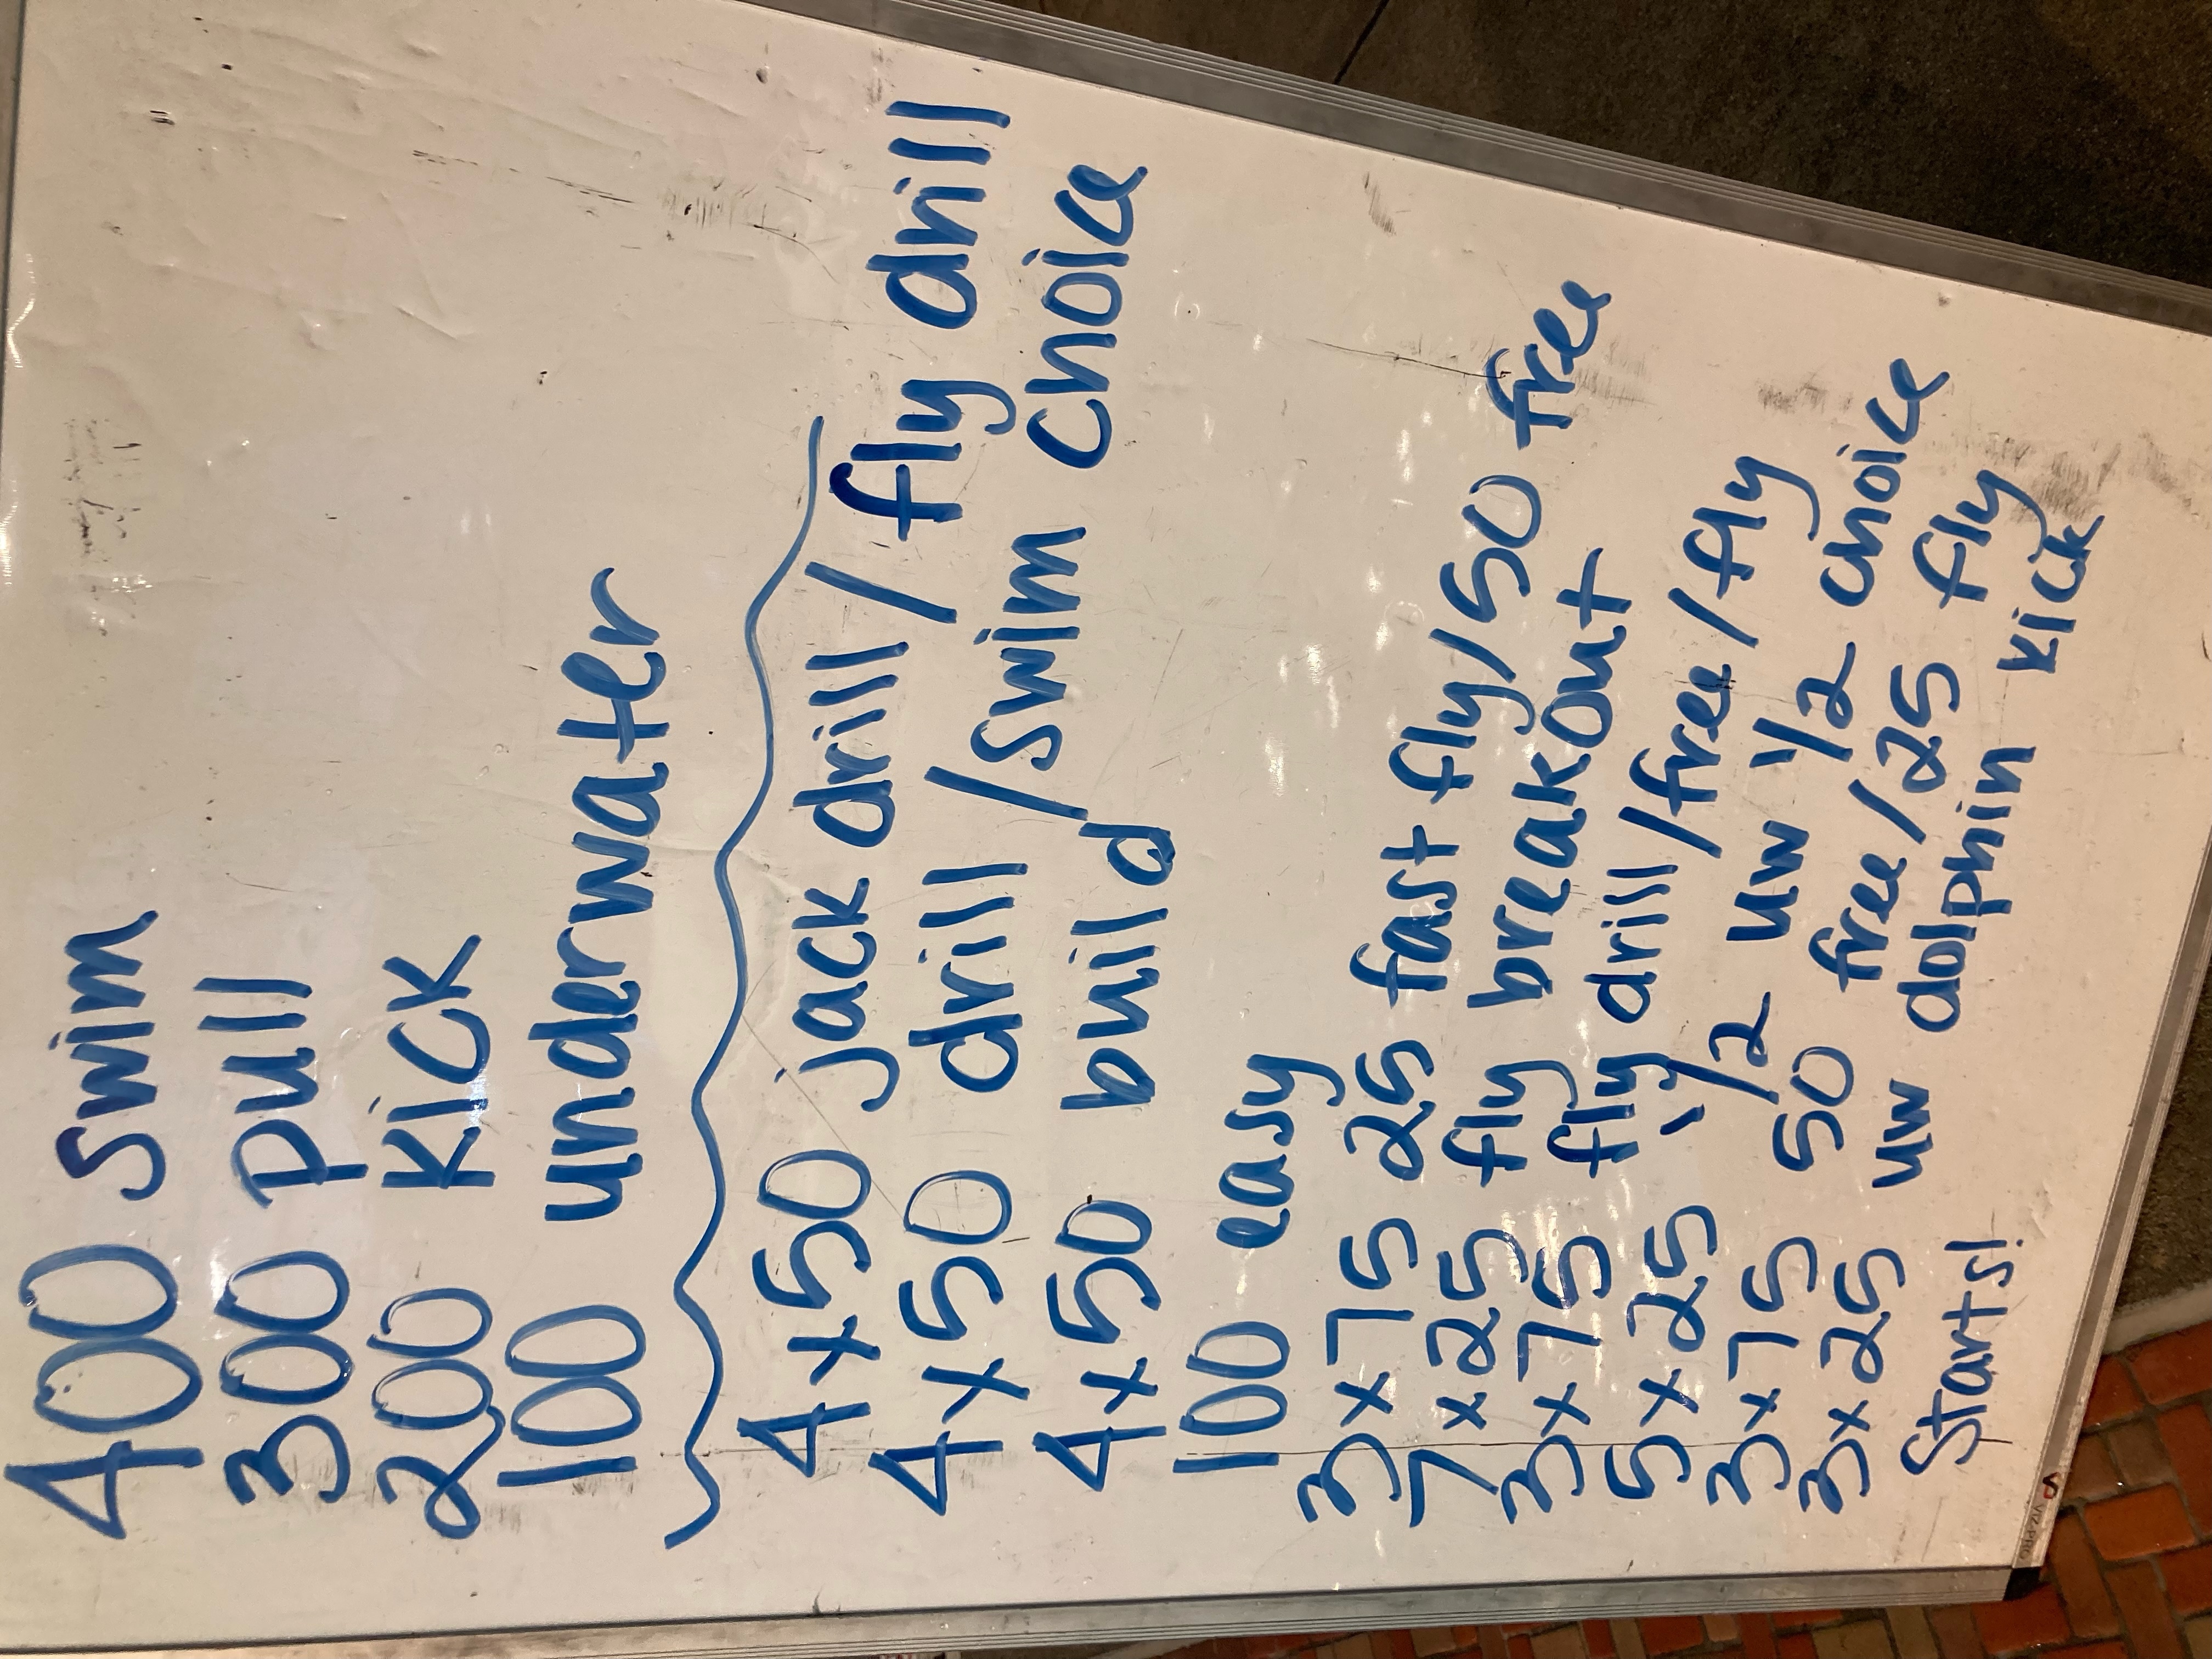 400 Swim
300 pull
200 kick
100 underwater
4x50 jack drill / fly drill
4x50 drill / swim choice
4x50 build
100 easy
3x75 25 fast fly/50 free
7x25 fly breakout
3x75 fly drill/free/fly
5x25 1/2 uw 1/2 choice
3x75 50 free/25 fly
3x25 uw dolphin kick
Starts!
VIZ-PRO